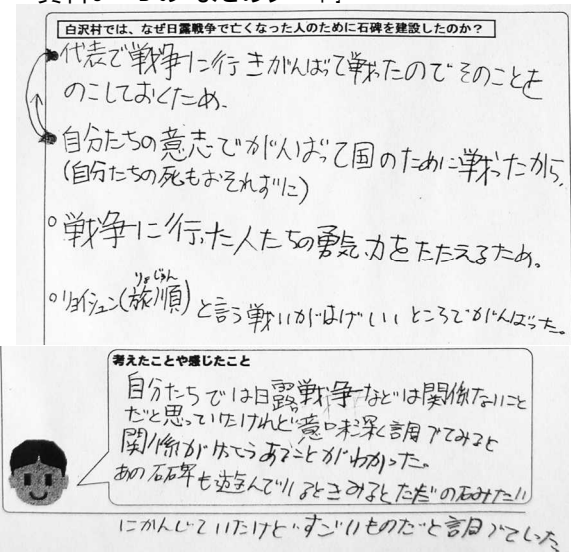 白沢村では、なぜ日露戦争で亡くなった人のために石碑を建設したのか？
代表で戦争に行きがんばって戦ったのでそのことを
のこしておくため。
自分たちの意志でがんばって国のために戦ったから。
(自分たちの死もおそれずに)
戦争に行った人たちの勇気、力をたたえるため。
リョイシュン(旅順)と言う戦いがはげしいところでがんばった。
りょじゅん
考えたことや感じたこと
自分たちでは日露戦争などは関係ないこと
だと思っていたけれど意味深く調べてみると
関係がけっこうあることがわかった。
あの石碑も遊んでいるときみるとただの石みたい
にかんじていたけどすごいものだと調べてしった